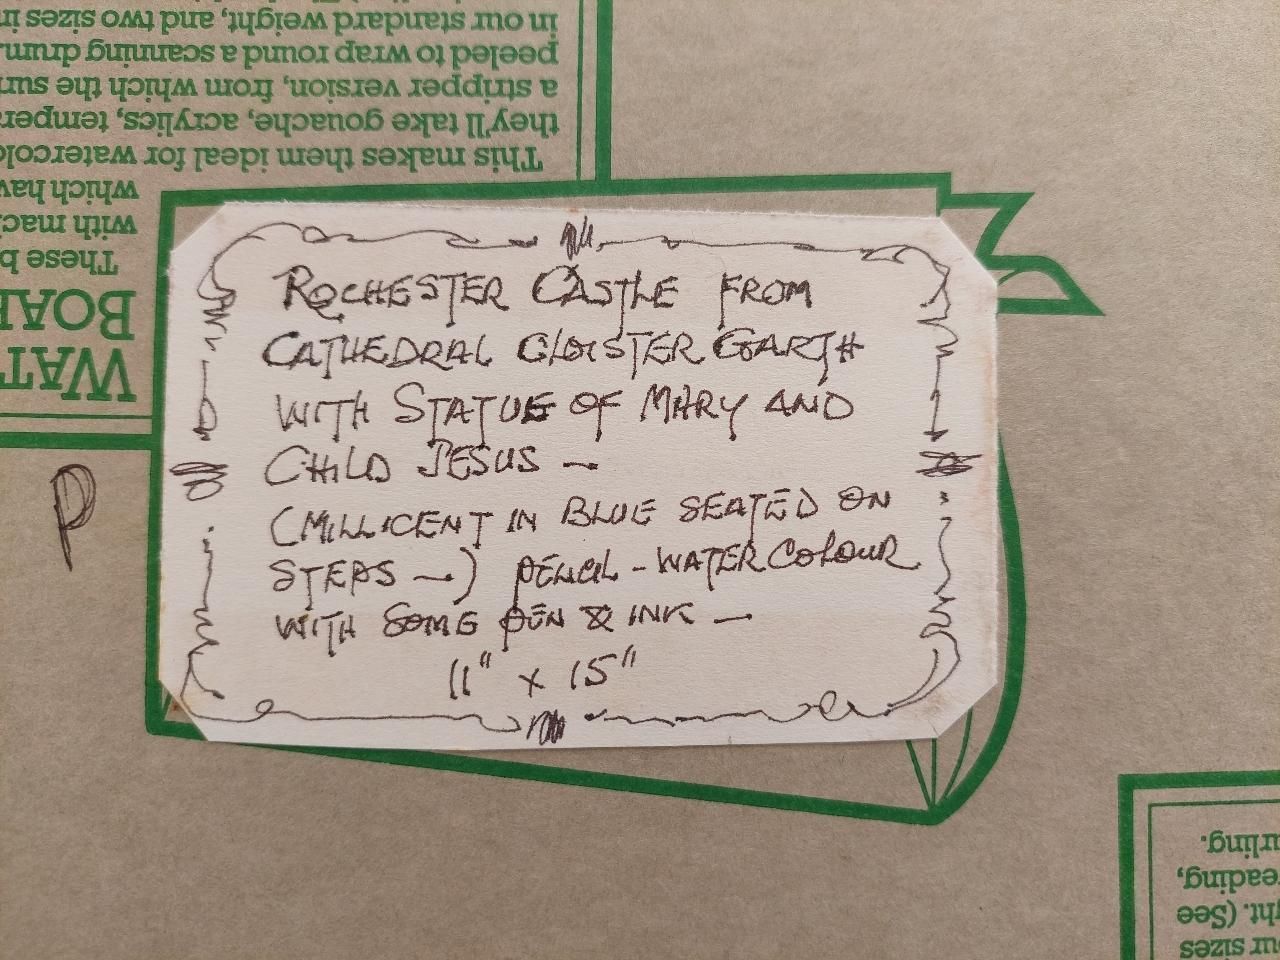 in our standard weight, and two sizes in
peeled to wrap round a scanning drum.
a stripper version, from which the
they'll take gouache, acrylics,
This makes them ideal for
which
with
These
BOAR
WAT
ROCHESTER CASTLE FROM
CATHEDRAL CLOISTER GARTH
WITH STATUE OF MARY AND
CHILD JESUS —
(MILLICENT IN BLUE SEATED ON
STEPS —) PENCIL - WATERCOLOUR
WITH SOME PEN & INK —
11" x 15"
P
urling.
eading,
ght. (See
ur sizes